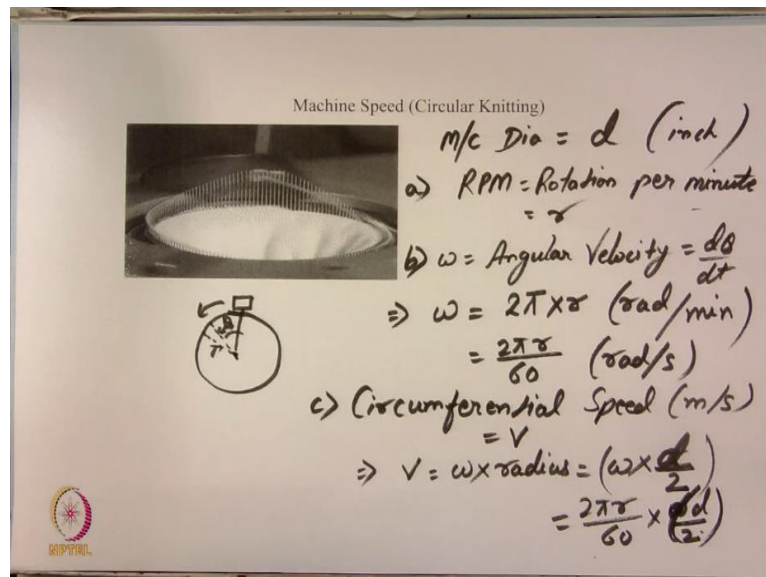 Machine Speed (Circular Knitting)
M/c Dia = d (inch)
a) RPM = Rotation per minute
= r
b) ω = Angular Velocity = dθ/dt
⇒ ω = 2π×r (rad/min)
= 2πr/60 (rad/s)
θ
r
c) Circumferential Speed (m/s)
= V
⇒ V = ω×radius = (ω×d/2)
= 2πr/60 × (d/2)
NPTEL